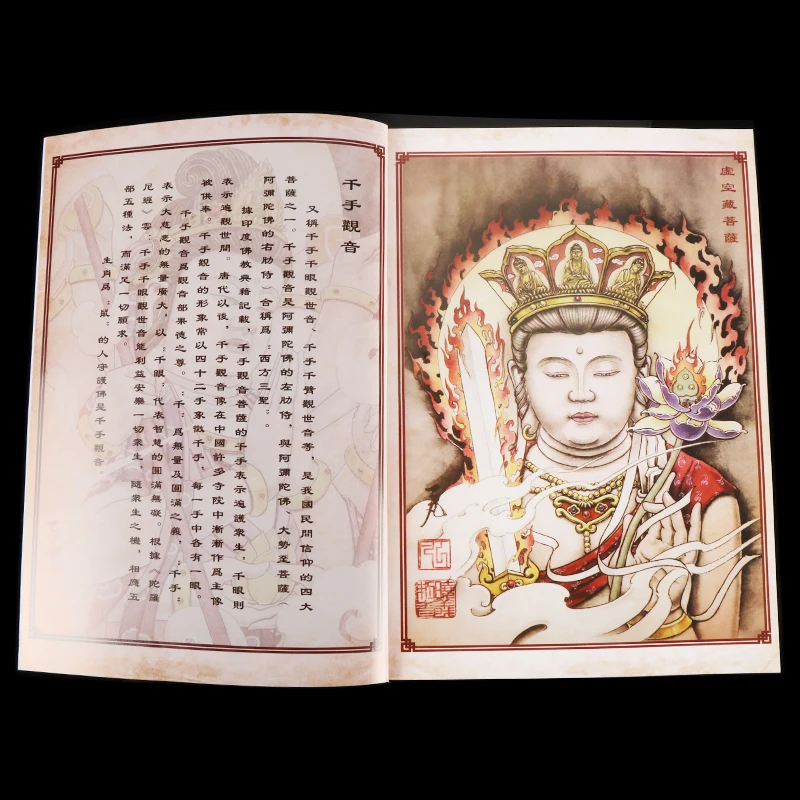 千手觀音
又稱千手千眼觀世音、千手千臂觀世音等，是我國民間信仰的四大
菩薩之一。千手觀音是阿彌陀佛的左肋侍，與阿彌陀佛、大勢至菩薩（
阿彌陀佛的右肋侍）合稱爲"西方三聖"。
據印度佛教典籍記載，千手觀音菩薩的千手表示遍護衆生，千眼則
表示遍觀世間。唐代以後，千手觀音像在中國許多寺院中漸漸作爲主像
被供奉。千手觀音的形象常以四十二手象徵千手，每一手中各有一眼。
千手觀音爲觀音部果德之尊。"千"爲無量及圓滿之義，"千手"
表示大慈悲的無量廣大，以"千眼"代表智慧的圓滿無礙。根據《陀羅
尼經》雲：千手千眼觀世音能利益安樂一切衆生，隨衆生之機，相應五
部五種法，而滿足一切願求。
生肖爲"鼠"的人守護佛是千手觀音。
虛空藏菩薩